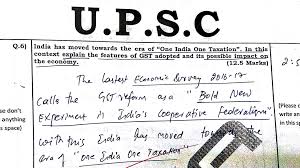 U.P.S.C
Q.6) India has moved towards the era of "One India One Taxation". In this
context explain the features of GST adopted and its possible impact on
the economy. (12.5 Marks)
The lastest Economic Survey 2016-17
calls the GST reform as a "Bold New
Experiment in India's Cooperative Federalism"
with this India has moved towards the
era of "One India One Taxation"
don't
anything
space)